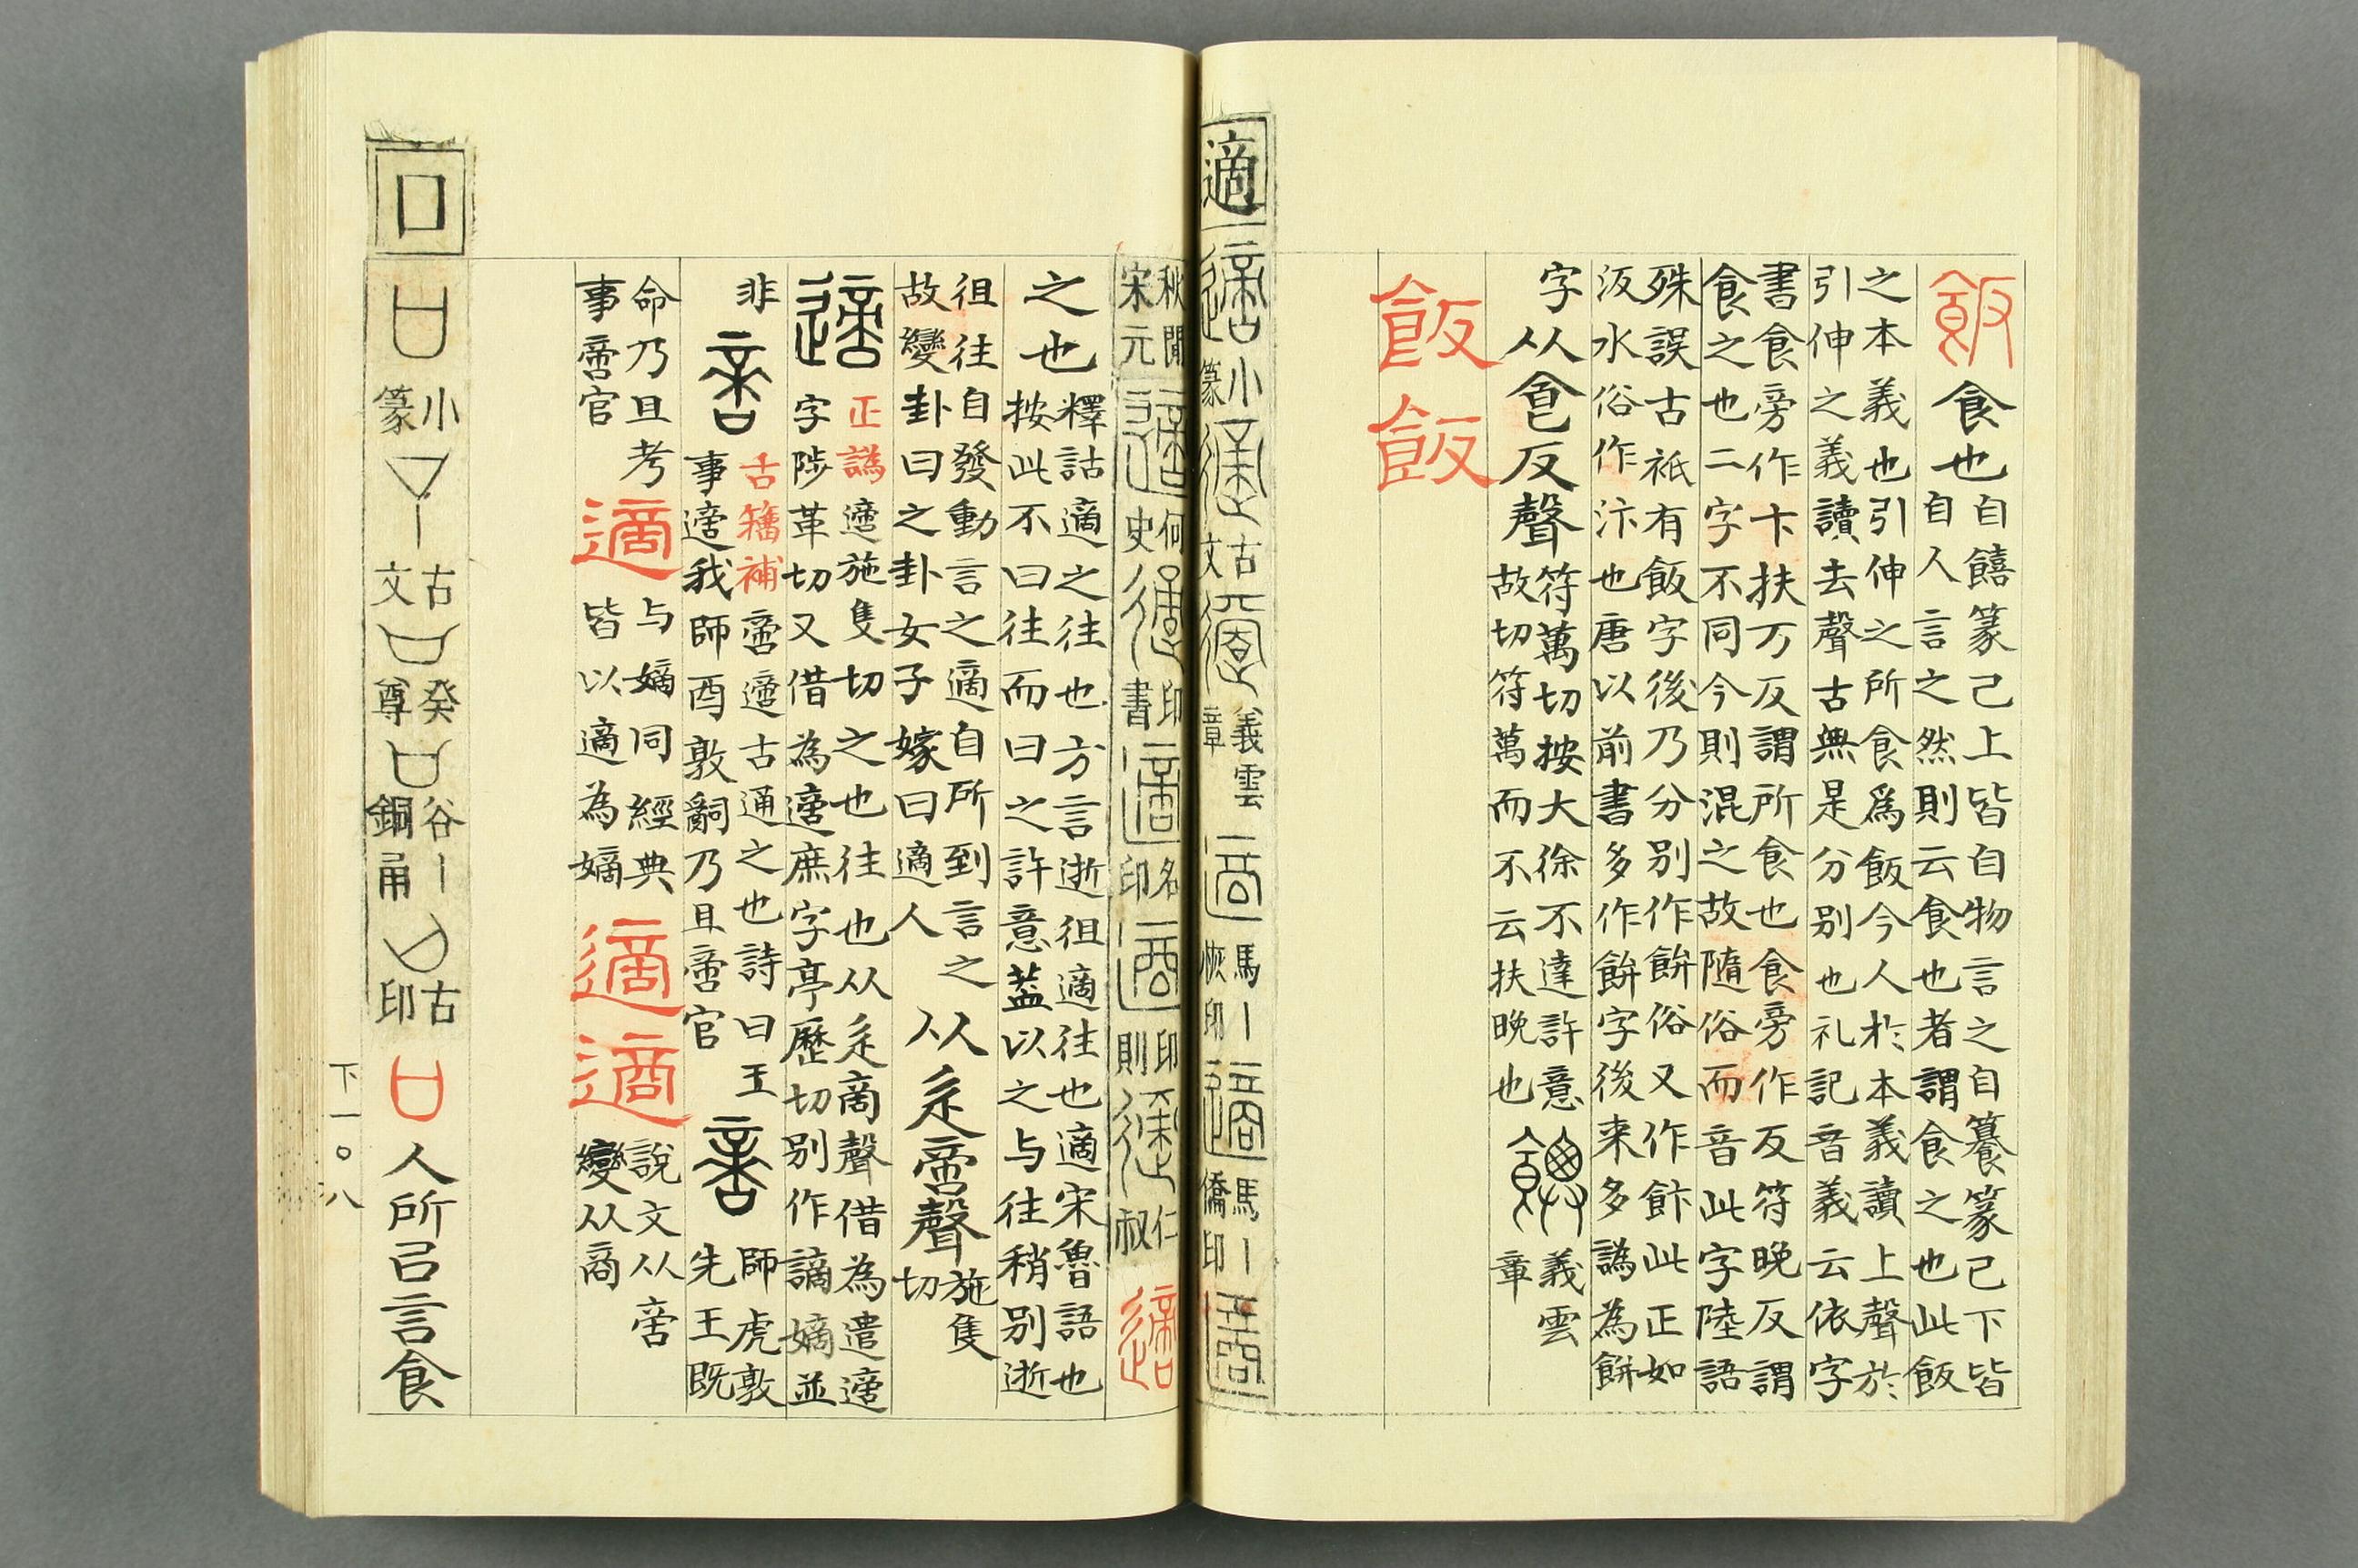 飯 食也
自饎篆已上皆自物言之自籑篆已下皆
自人言之然則云食也者謂食之也此飯
之本義也引伸之所食爲飯今人於本義讀上聲於
引伸之義讀去聲古無是分別也礼記音義云依字
書食旁作卞扶万反謂所食也食旁作反符晚反謂
食之也二字不同今則混之故隨俗而音此字陸語
殊誤古祇有飯字後乃分別作餠俗又作飰此正如
汳水俗作汴也唐以前書多作餠字後来多譌為餅
字 从食反聲
符萬切按大徐不達許意
故切符萬而不云扶晚也
義雲
章
飯 飯
適
小
篆
古
文
義雲
章
馬丨
恢印
馬丨
僑印
秋閒
宋元
何
史
印
書
名
印
印
則
仁
叔
適
之也
釋詁適之往也方言逝徂適往也適宋魯語也
按此不曰往而曰之許意蓋以之与往稍別逝
徂往自發動言之適自所到言之
故變卦曰之卦女子嫁曰適人
从辵啻聲
施隻
切
適
正譌
適施隻切之也往也从辵啇聲借為遣適
字陟革切又借為適庶字亭歷切別作謫嫡並
非
啻
古籀補
啻適古通之也詩曰王
事適我師酉敦嗣乃且啻官
啻
師虎敦
先王既
命乃且考
事啻官
適
与嫡同經典
皆以適為嫡
適 適
說文从啻
變从啇
口
小
篆
古
文
癸
尊
谷丨
銅甬
古
印
口 人所㠯言食
下一〇八